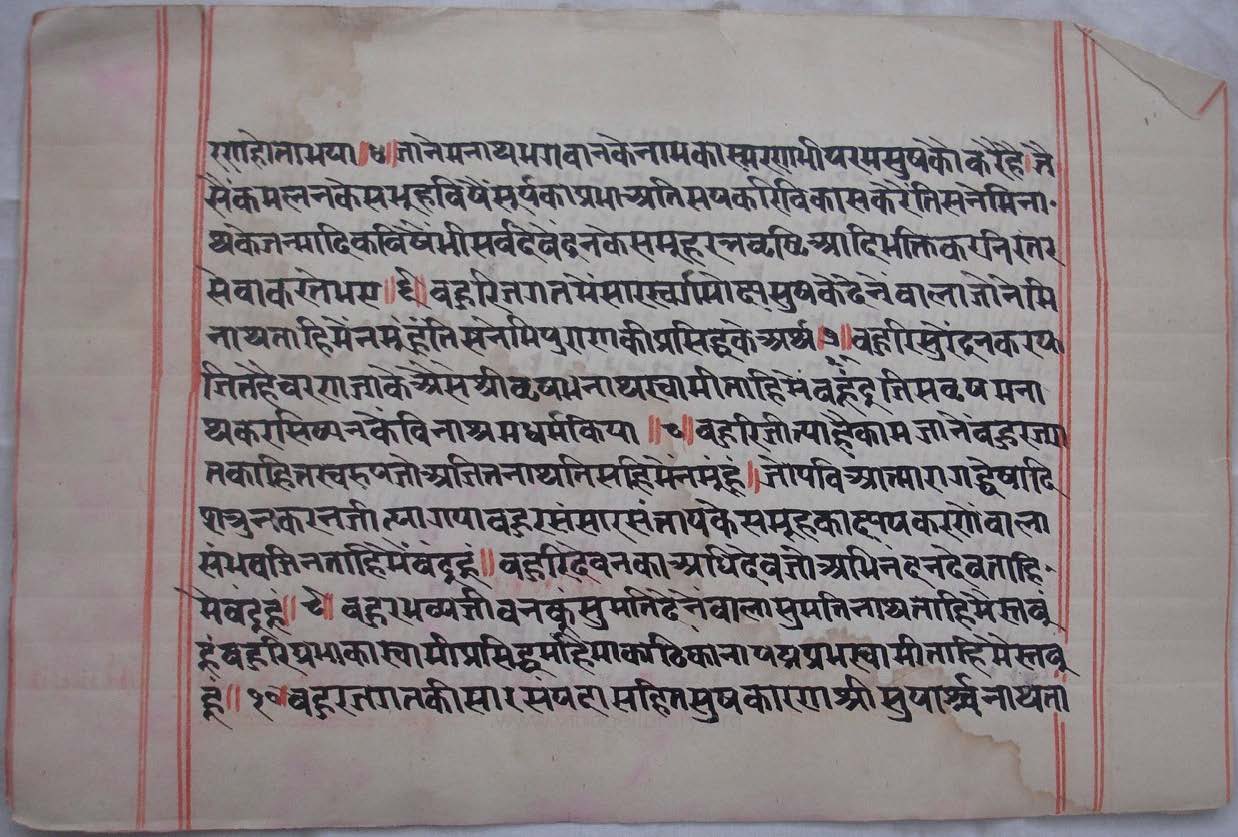 रणहोताभया॥५॥जानेमनाथभगवानकेनामकास्मरणभीपरमसुषकोकरैहै।जै
सैंकमलनकेसमूहविषैंसूर्यकाप्रभाअतिसयकरिविकासकरेंतिसनेमिना
थकेजन्मादिकविषैंभीसर्वदेवेंद्रनकेसमूहरत्नवृष्टिआदिभक्तिकरनिरंतर
सेवाकरतेभए॥६॥बहुरिजगतमेंसारस्वर्गमोक्षसुषकेदेनेंवालाजोनेमि
नाथताहिमेंनमूंहूंतिसनेमिपुराणकीप्रसिद्धकेअर्थ॥७॥बहुरिसुरेंद्रनकरपू
जितहैचरणजाकेऐसेश्रीवृषभनाथस्वामीताहिमेंबंदूहूंजिसवृषभना
थकरसिष्यनकेंविनाश्रमधर्मकिया॥८॥बहुरिजीत्याहैकामजानेंबहुरजग
तकाहितस्वरुपजोअजितनाथतिसहिमेंनमूंहूं॥जोपविआत्मारागद्वेषादि
शत्रुनकरनजीत्यागयाबहुरसंसारसंतापकेसमूहकाक्षयकरणेंवाला
संभवजिनताहिमैंबंदूहूं॥बहुरिदेवनकाअधिदेवजोअभिनंदनदेवताहि
मैबंदूहूं॥९॥बहुरभव्यजीवनकूंसुमतिदेनेंवालासुमतिनाथताहिमैस्तवूं
हूंबहुरिप्रभाकास्वामीप्रसिद्धमहिमाकाठिकानापद्मप्रभस्वामीताहिमेस्तवू
हूं॥१०बहुरजगतकीसारसंपदासहितसुषकारणश्रीसुपार्श्वनाथता